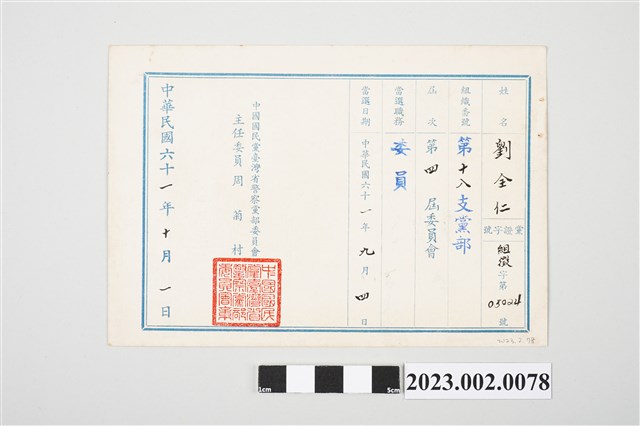 姓名 劉全仁 黨證字號 組徵字第05024號
組織番號 第十八支黨部
屆次 第四屆委員會
當選職務 委員
當選日期 中華民國六十一年九月四日
中國國民黨臺灣省警察黨部委員會
主任委員 周菊村
中華民國六十一年十月一日
中國國民黨臺灣省警察黨部委員會章
1cm 5cm
2023.002.0078